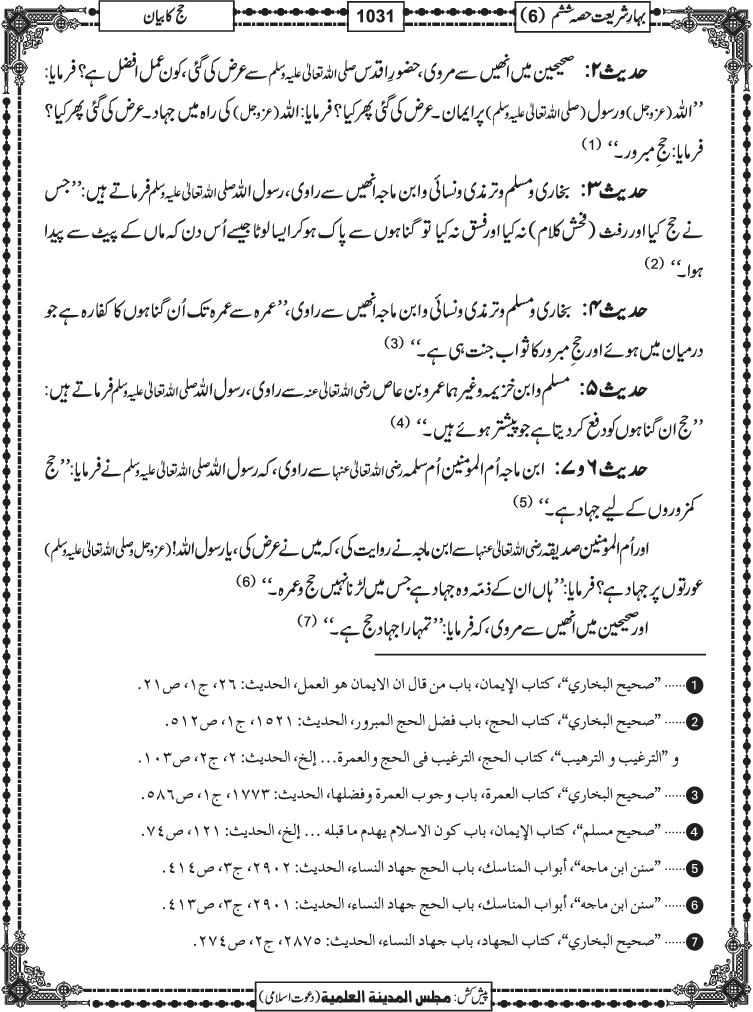 بہارِ شریعت حصہ ششم (6)
1031
حج کا بیان
حدیث ۲: صحیحین میں انھیں سے مروی، حضورِ اقدس صلی اللہ تعالیٰ علیہ وسلم سے عرض کی گئی، کون عمل افضل ہے؟ فرمایا:
’’اللہ (عزوجل) و رسول (صلی اللہ تعالیٰ علیہ وسلم) پر ایمان۔ عرض کی گئی پھر کیا؟ فرمایا: اللہ (عزوجل) کی راہ میں جہاد۔ عرض کی گئی پھر کیا؟
فرمایا: حجِ مبرور۔‘‘ (1)
حدیث ۳: بخاری و مسلم و ترمذی و نسائی و ابن ماجہ انھیں سے راوی، رسول اللہ صلی اللہ تعالیٰ علیہ وسلم فرماتے ہیں: ’’جس
نے حج کیا اور رفث (فحش کلام) نہ کیا اور فسق نہ کیا تو گناہوں سے پاک ہو کر ایسا لوٹا جیسے اُس دن کہ ماں کے پیٹ سے پیدا
ہوا۔‘‘ (2)
حدیث ۴: بخاری و مسلم و ترمذی و نسائی و ابن ماجہ انھیں سے راوی، ’’عمرہ سے عمرہ تک اُن گناہوں کا کفارہ ہے جو
درمیان میں ہوئے اور حجِ مبرور کا ثواب جنت ہی ہے۔‘‘ (3)
حدیث ۵: مسلم و ابن خزیمہ وغیرہما عمرو بن عاص رضی اللہ تعالیٰ عنہ سے راوی، رسول اللہ صلی اللہ تعالیٰ علیہ وسلم فرماتے ہیں:
’’حج ان گناہوں کو دفع کر دیتا ہے جو پیشتر ہوئے ہیں۔‘‘ (4)
حدیث ۶ و ۷: ابن ماجہ اُم المومنین اُم سلمہ رضی اللہ تعالیٰ عنہا سے راوی، کہ رسول اللہ صلی اللہ تعالیٰ علیہ وسلم نے فرمایا: ’’حج
کمزوروں کے لیے جہاد ہے۔‘‘ (5)
اور اُم المومنین صدیقہ رضی اللہ تعالیٰ عنہا سے ابن ماجہ نے روایت کی، کہ میں نے عرض کی، یا رسول اللہ! (عزوجل و صلی اللہ تعالیٰ علیہ وسلم)
عورتوں پر جہاد ہے؟ فرمایا: ’’ہاں ان کے ذمّہ وہ جہاد ہے جس میں لڑنا نہیں حج و عمرہ۔‘‘ (6)
اور صحیحین میں انھیں سے مروی، کہ فرمایا: ’’تمہارا جہاد حج ہے۔‘‘ (7)
1 ...... ”صحيح البخاري“، كتاب الإيمان، باب من قال ان الايمان هو العمل، الحديث: ٢٦، ج١، ص٢١.
2 ...... ”صحيح البخاري“، كتاب الحج، باب فضل الحج المبرور، الحديث: ١٥٢١، ج١، ص٥١٢.
و ”الترغيب و الترهيب“، كتاب الحج، الترغيب فى الحج والعمرة... إلخ، الحديث: ٢، ج٢، ص١٠٣.
3 ...... ”صحيح البخاري“، كتاب العمرة، باب وجوب العمرة وفضلها، الحديث: ١٧٧٣، ج١، ص٥٨٦.
4 ...... ”صحيح مسلم“، كتاب الإيمان، باب كون الاسلام يهدم ما قبله ... إلخ، الحديث: ١٢١، ص٧٤.
5 ...... ”سنن ابن ماجه“، أبواب المناسك، باب الحج جهاد النساء، الحديث: ٢٩٠٢، ج٣، ص٤١٤.
6 ...... ”سنن ابن ماجه“، أبواب المناسك، باب الحج جهاد النساء، الحديث: ٢٩٠١، ج٣، ص٤١٣.
7 ...... ”صحيح البخاري“، كتاب الجهاد، باب جهاد النساء، الحديث: ٢٨٧٥، ج٢، ص٢٧٤.
پیش کش: مجلس المدينة العلمية (دعوت اسلامی)